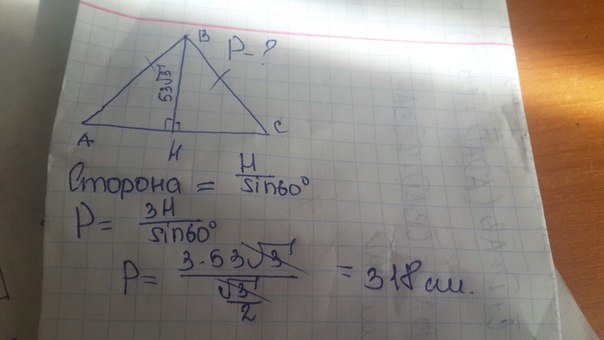 B
P-?
53√3
A
H
C
Сторона = H/sin60°
P = 3H/sin60°
P = 3·53√3/(√3/2) = 318 см.